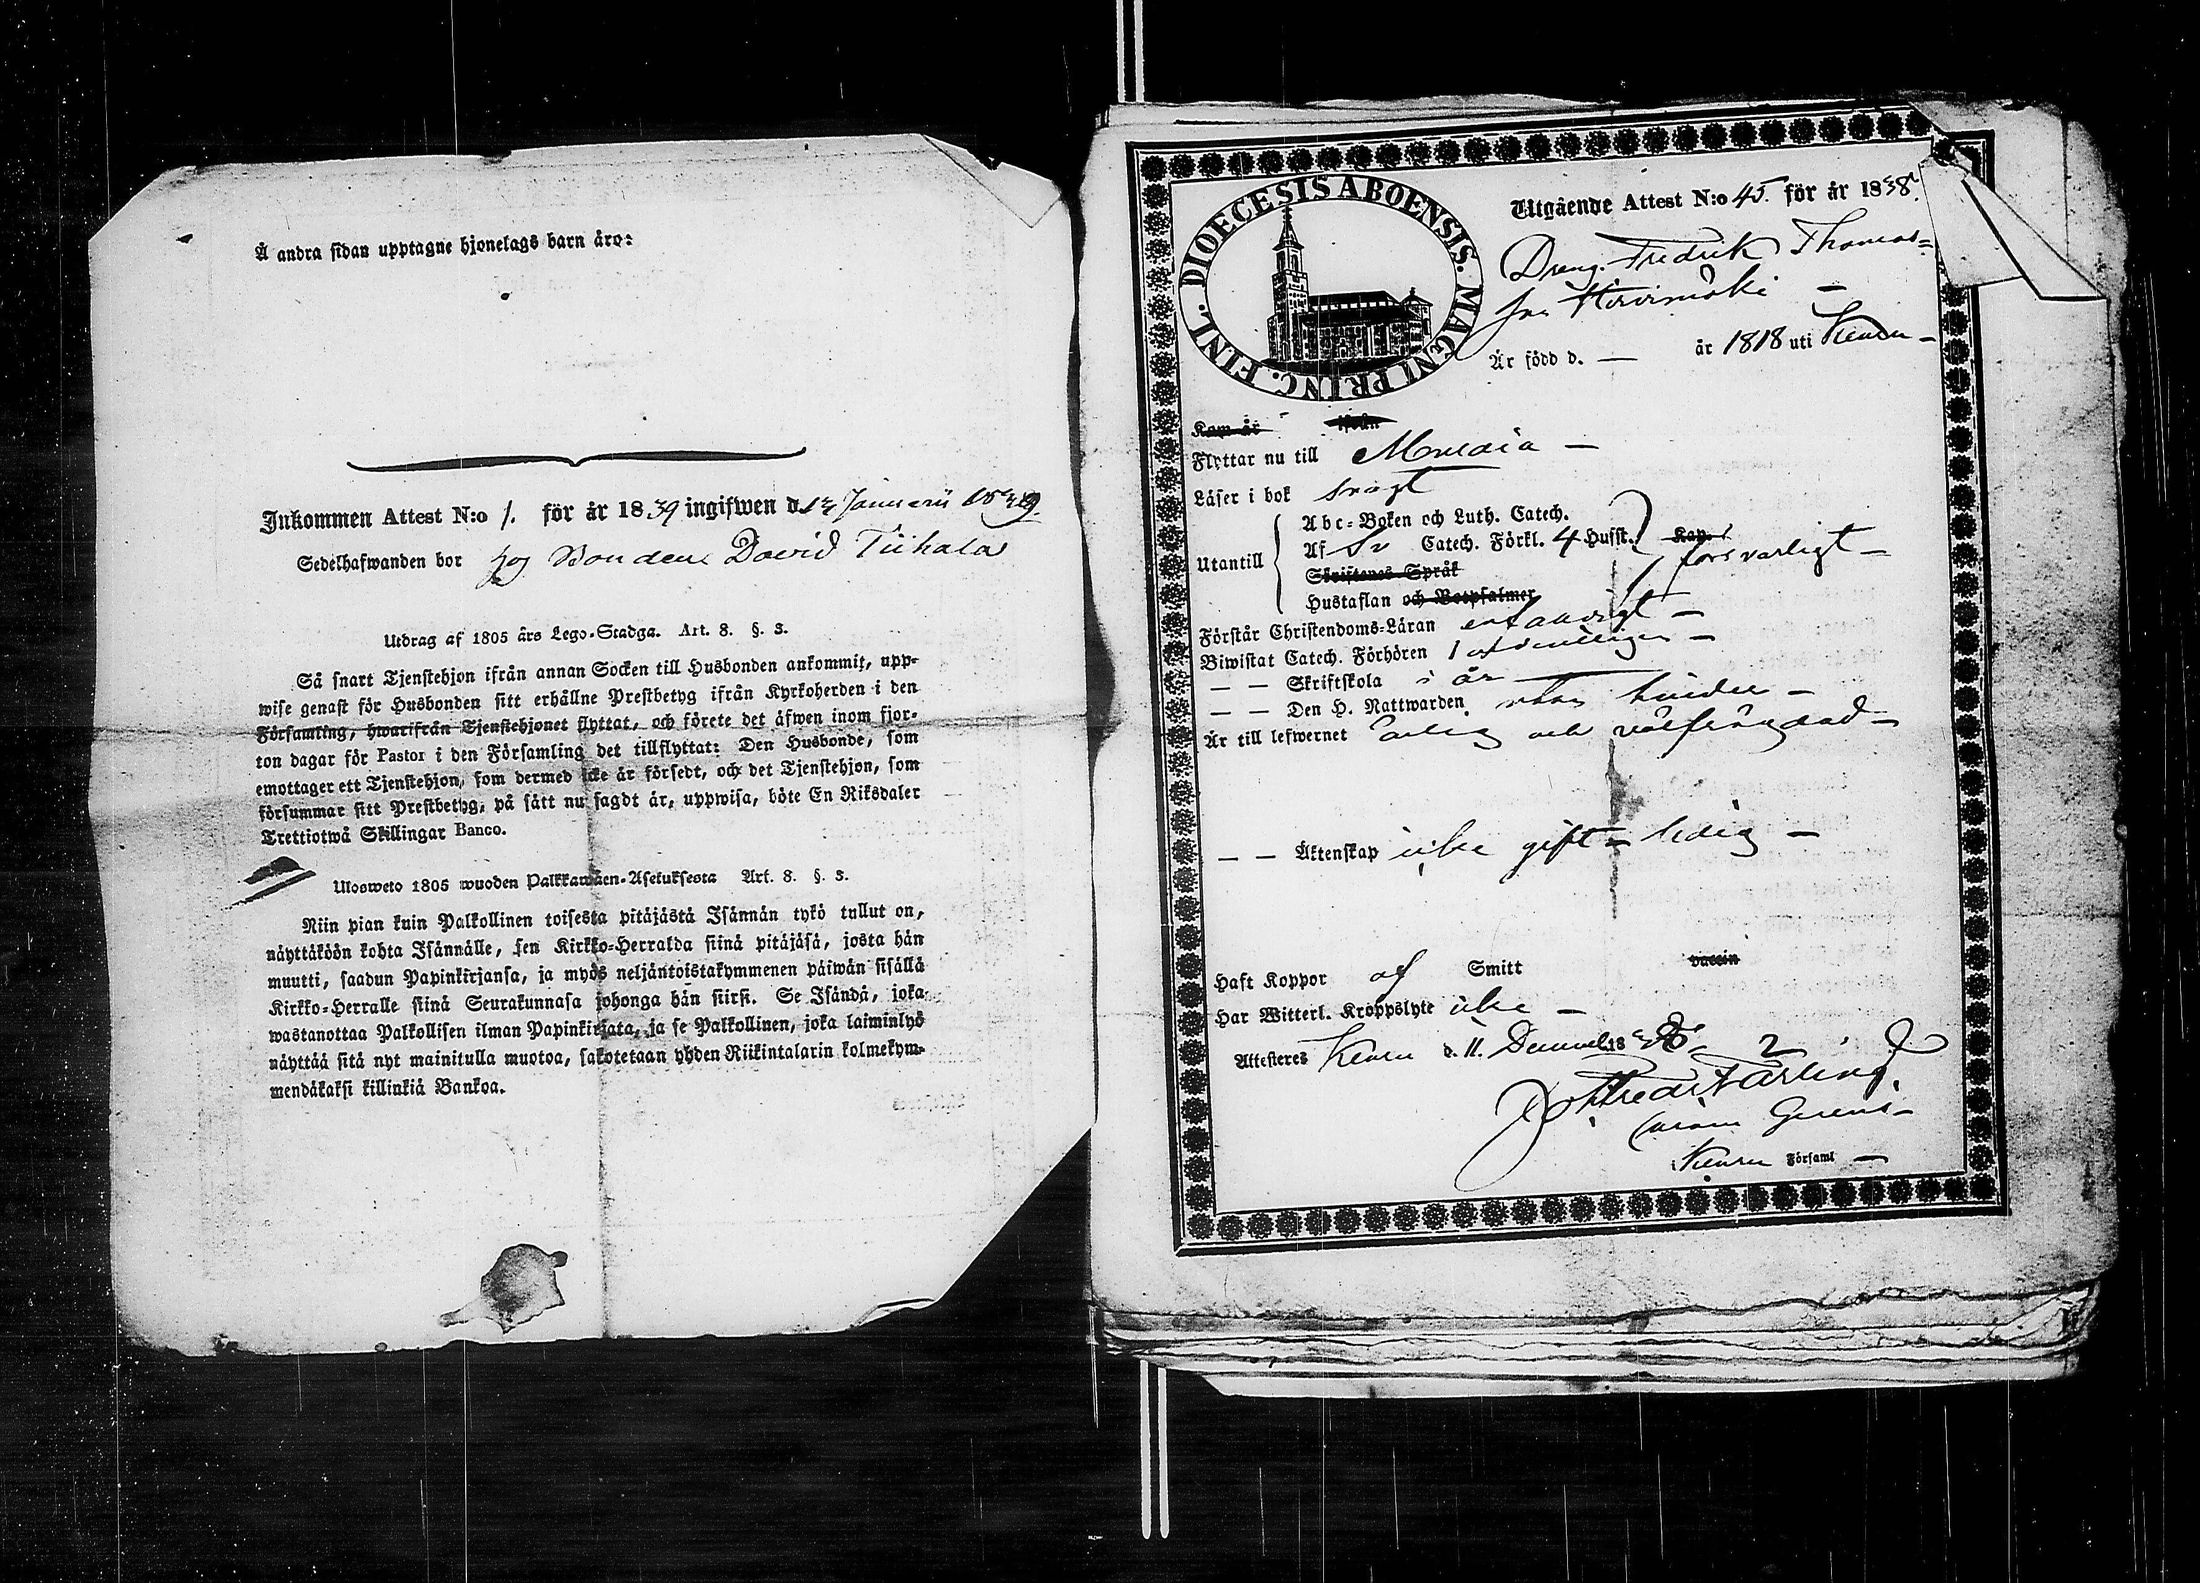 Å andra sidan upptagne hjonelags barn äro:
Inkommen Attest N:o 1. för år 1839 ingifwen d. 13 Januarii 1839.
Sedelhafwanden bor hos Bonden David Tiihala
Utdrag af 1805 års Lego-Stadga. Art. 8. §. 3.
Så snart Tjenstehjon ifrån annan Socken till Husbonden ankommit, upp-
wise genast för Husbonden sitt erhållne Prestbetyg ifrån Kyrkoherden i den
Församling, hwarifrån Tjenstehjonet flyttat, och förete det äfwen inom fjor-
ton dagar för Pastor i den Församling det tillflyttat: Den Husbonde, som
emottager ett Tjenstehjon, som dermed icke är försedt, och det Tjenstehjon, som
försummar sitt Prestbetyg, på sätt nu sagdt är, uppwisa, böte En Riksdaler
Trettiotwå Skillingar Banco.
Ulosweto 1805 wuoden Palkkawäen-Asetuksesta Art. 8. §. 3.
Niin pian kuin Palkollinen toisesta pitäjästä Isännän tykö tullut on,
näyttäköön kohta Isännälle, sen Kirkko-Herralda siinä pitäjäsä, josta hän
muutti, saadun Papinkirjansa, ja myös neljäntoistakymmenen päiwän sisällä
Kirkko-Herralle siinä Seurakunnasa johonga hän siirsi. Se Isändä, joka
wastanottaa Palkollisen ilman Papinkirjata, ja se Palkollinen, joka laiminlyö
näyttää sitä nyt mainitulla muotoa, sakotetaan yhden Riikintalarin kolmekym-
mendäkaksi killinkiä Bankoa.
DIOECESIS ABOENSIS. MAGNI PRINC. FINL.
Utgående Attest N:o 45. för år 1838.
Dreng. Fredrik Thomas-
son Hirvimäki —
Är född d. — år 1818 uti Keuru —
Kom år ifrån
Flyttar nu till —
Läser i bok svagt
Utantill
Abc-Boken och Luth. Catech.
Af Sv Catech. Förkl. 4 Husst. Kap.
försvarligt —
Skriftenes Språk
Hustaflan och Botpsalmer
Förstår Christendoms-Läran enfaldigt —
Biwistat Catech. Förhören ordentligen —
— — Skriftskola i år
— — Den H. Nattwarden utan hinder —
Är till lefwernet Ärlig och välfrägdad —
— — Äktenskap icke gift — ledig —
Haft Koppor af Smitt vaccin
Har Witterl. Kroppslyte icke —
Attesteres Keuru d. 11. December 1838.
i Keuru Församl —